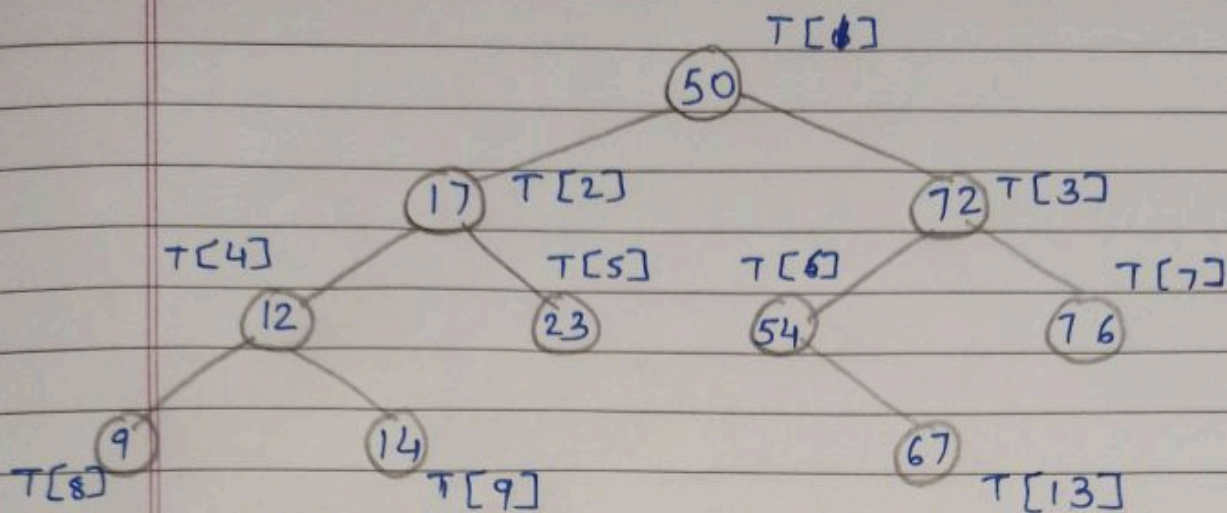 T[1]
50
17 T[2] 72 T[3]
T[4] T[5] T[6] T[7]
12 23 54 76
9 14 67
T[8] T[9] T[13]